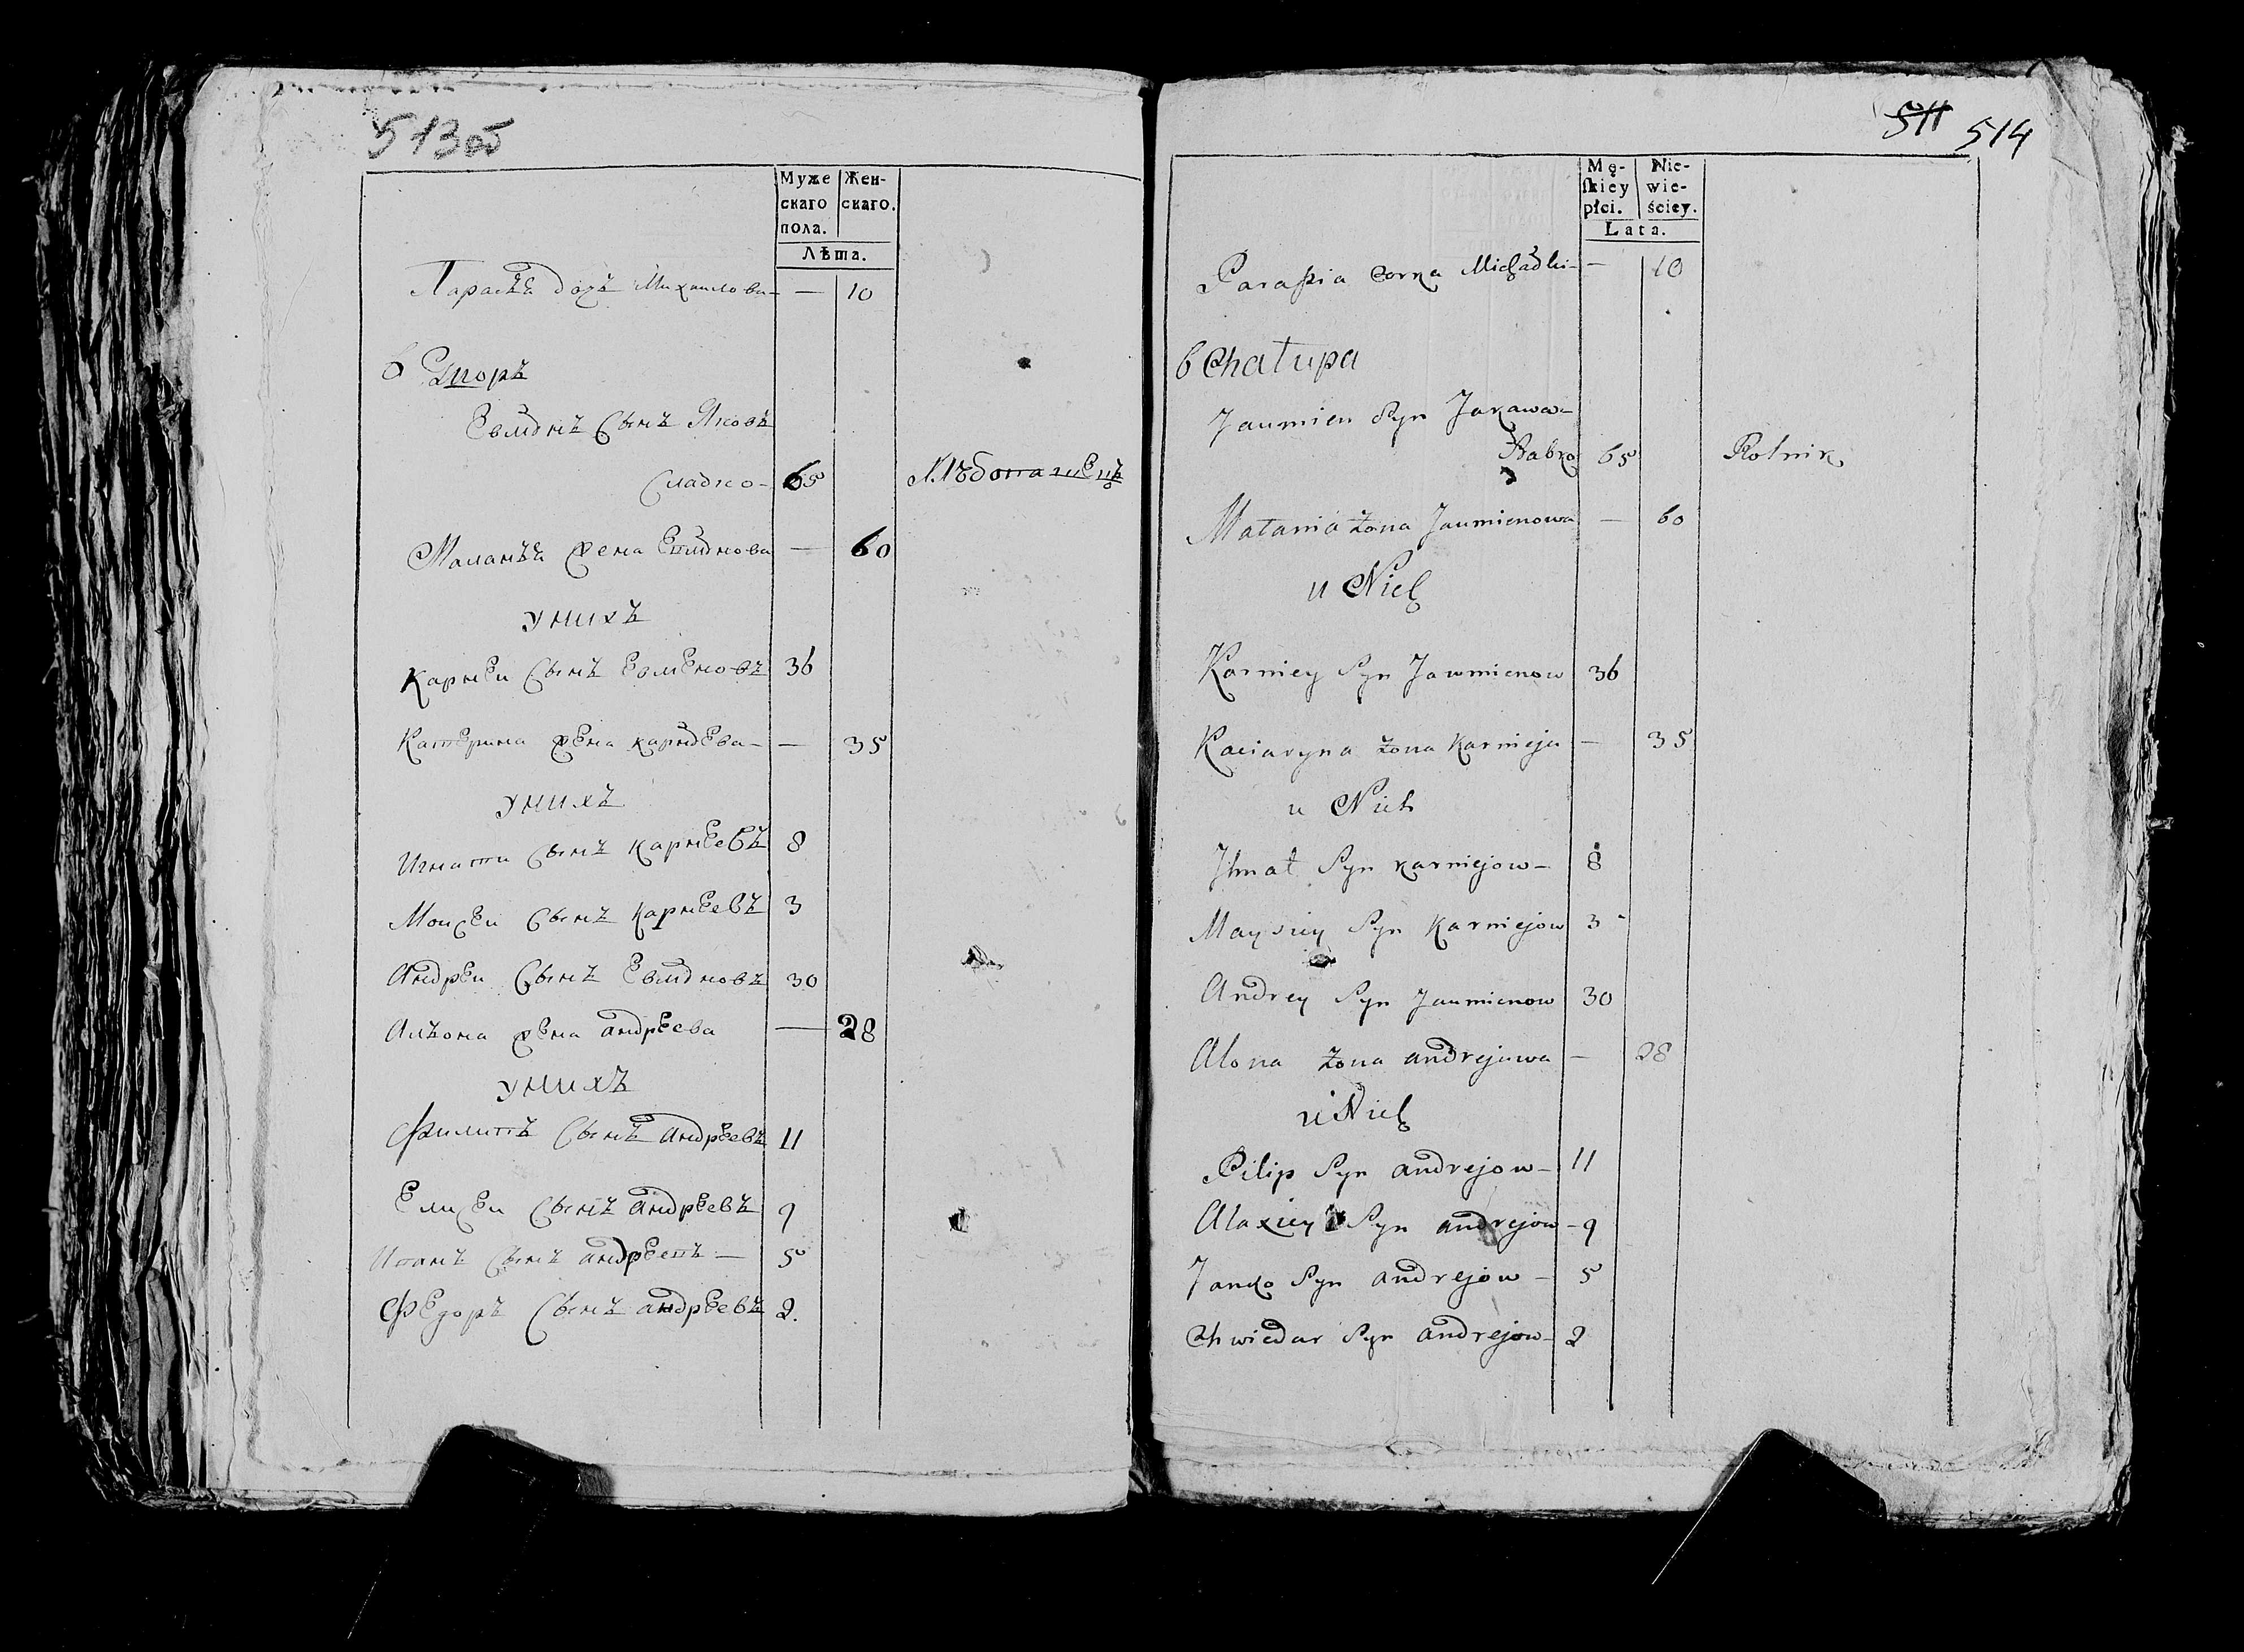 513об
Муже
скаго
пола.
Жен-
скаго.
Лѣта.
Парасѣа дочь Михаилова — 10
6 Дворъ
Евмѣнъ Сынъ Яковъ
65 Хлѣбопашецъ
Маланѣа жена Евмѣнова — 60
У нихъ
Карнеи Сынъ Евменовъ 36
Катерина жена карнѣева — — 35
У нихъ
Игнати Сынъ карнеевъ 8
Моисеи Сынъ карнеевъ 3
Андреи Сынъ Евмѣновъ 30
Алѣона жена андреева — 28
У нихъ
Филипъ Сынъ андреевъ 11
Елисеи Сынъ андреевъ 9
Иванъ Сынъ андреевъ — 5
Федоръ Сынъ андреевъ 2.
511 514
Mę-
ſkiey
płci.
Nie-
wie-
ściey.
Lata.
Paraſzia Corka Michadki — — 10
6 Chałupa
Jaumien Syn Jakawa-
65 Rolnik
Małania żona Jaumienowa — 60
u Nich
Karniey Syn Jawmienow 36
Kaciaryna żona Karnieja — 35
u Nich
Jhnat Syn karniejow — 8
Maysiey Syn Karniejow 3
Andrey Syn Jaumienow 30
Alona żona andrejowa — 28
u Nich
Pilip Syn andrejow — 11
Alaxiey Syn andrejow — 9
Janko Syn andrejow — 5
Chwiedar Syn andrejow — 2